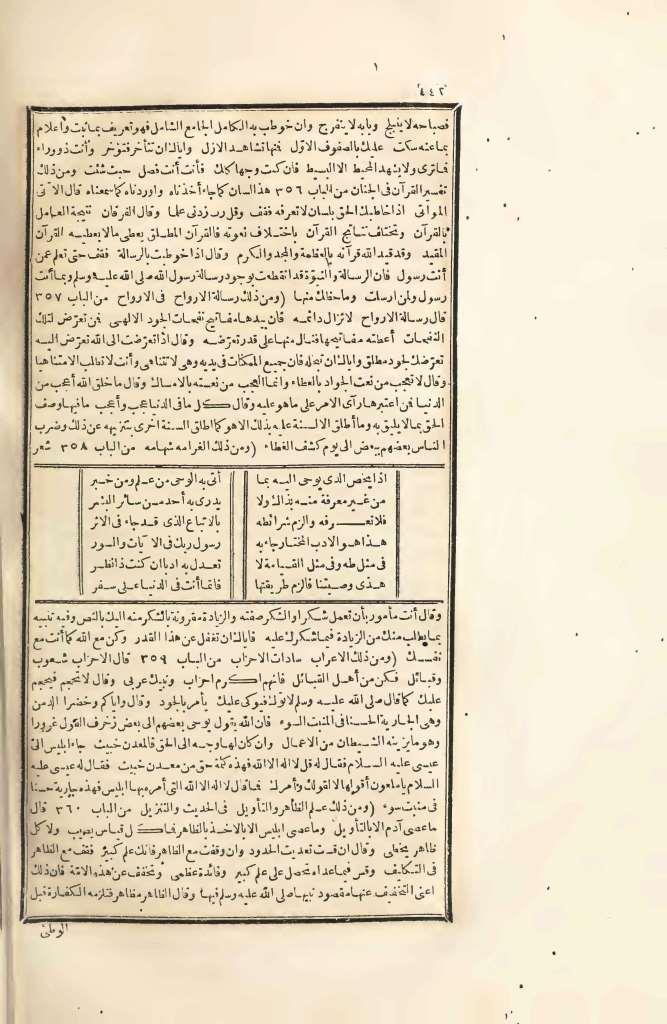 ٤٤٢
فصباحه لا ينبلج وبابه لا ينفرج وان خوطب به الكامل الجامع الشامل فهو تعريف بما ثبت واعلام
بما عنه سكت عليك بالصفوف الاول فيها تشاهد الازل واياك ان تتأخر فتؤخر وأنت ذو وراء
فماترى ولا يشهد المحيط الا البسيط فان كنت وجها كلك فأنت أنت فصل حيث شئت ومن ذلك
تفسير القرآن في الجنان من الباب ٣٥٦ هذا لسان كما جاء أخذناه واوردناه كما سمعناه قال الآتى
المواتى اذا خاطبك الحق بلسان لا تعرفه فقف وقل رب زدنى علما وقال الفرقان نتيجة العامل
بالقرآن وتختلف نتائج القرآن باختلاف نعوته فالقرآن المطلق يعطى ما لا يعطيه القرآن
المقيد وقد قيد الله قرآنه بالعظمة والمجد والكرم وقال اذا خوطبت بالرسالة فقف حتى تعلم عمن
أنت رسول فان الرسالة والنبوة قد انقطعت بوجود رسالة رسول الله صلى الله عليه وسلم وبما أنت
رسول ولمن ارسلت وما حظك منها (ومن ذلك رسالة الارواح فى الارواح من الباب ٣٥٧
قال رسالة الارواح لا تزال دائمه فان بيدها مفاتيح نفحات الجود الالهى فمن تعرض لتلك
النفحات أعطته مفاتيحها فنال منها على قدر تعرضه وقال اذا تعرضت الى الله تعرض اليه
تعرضك لجود مطلق واياك ان تبخله فان جميع الممكنات فى يديه وهى لا تتناهى وأنت لا تطلب الا متناهيا
وقال لا تعجب من نعت الجواد بالعطاء وانما العجب من نعته بالامساك وقال ما خلق الله أعجب من
الدنيا فمن اعتبرها رآى الامر على ما هو عليه وقال كل ما فى الدنيا عجب وأعجب ما فيها وصف
الحق بما لا يليق به وما أطلق الالسنة عليه بذلك الا هو كما اطلق السنة اخرى بتنزيهه عن ذلك وضرب
الناس بعضهم ببعض الى يوم كشف الغطاء (ومن ذلك الغرامه شهامه من الباب ٣٥٨ شعر
اذا يخص الذى يوحى اليه بما أتى به الوحى من علم ومن خبر
من غير معرفة منه بذاك ولا يدرى به أحد من سائر البشر
فلا تعرفه والزم شرائطه بالاتباع الذى قد جاء فى الاثر
هذا هو الادب المختار جاء به رسول ربك فى الآيات والسور
فى مثل طه وفى مثل القيامة لا تعدل به ادبا ان كنت ذا نظر
هذى وصيتنا فالزم طريقتها فانما أنت فى الدنيا على سفر
وقال أنت مأمور بأن تعمل شكرا والشكر صفته والزيادة مقرونة بالشكر منه اليك بالنص وفيه تنبيه
بما يطلب منك من الزيادة فيما شكرك عليه فاياك ان تغفل عن هذا القدر وكن مع الله كما أنت مع
نفسك (ومن ذلك الاعراب سادات الاحزاب من الباب ٣٥٩ قال الاحزاب شعوب
وقبائل فكن من أهل القبائل فانهم اكرم احزاب ونبيك عربى وقال لا تحجم فيحجم
عليك كما قال صلى الله عليه وسلم لا توك فيوكى عليك يأمر بالجود وقال واياكم وخضرا الدمن
وهى الجارية الحسنا فى المنبت السوء فان الله يقول يوحى بعضهم الى بعض زخرف القول غرورا
وهو ما يزينه الشيطان من الاعمال وان كان لها وجه الى الحق فالمعدن خبيث جاء ابليس الى
عيسى عليه السلام فقال له قل لا اله الا الله فهذه كلمة حق من معدن خبيث فقال له عيسى عليه
السلام يا ملعون أقولها لا لقولك وأمرك فما قال لا اله الا الله التى أمره بها ابليس فهذه جارية حسنا
فى منبت سوء (ومن ذلك علم الظاهر والتأويل فى الحديث والتنزيل من الباب ٣٦٠ قال
ما عصى آدم الا بالتأويل وما عصى ابليس الا بالاخذ بالظاهر فما كل قياس يصيب ولا كل
ظاهر يخطى وقال ان قست تعديت الحدود وان وقفت مع الظاهر فاتك علم كبير فقف مع الظاهر
فى التكاليف وقس فيما عداه تحصل على علم كبير وفائدة عظمى وتخفف عن هذه الامة فان ذلك
اعنى التخفيف عنها مقصود نبيها صلى الله عليه وسلم فيها وقال الظاهر مظاهر فتلزمه الكفارة قبل
الوطئ